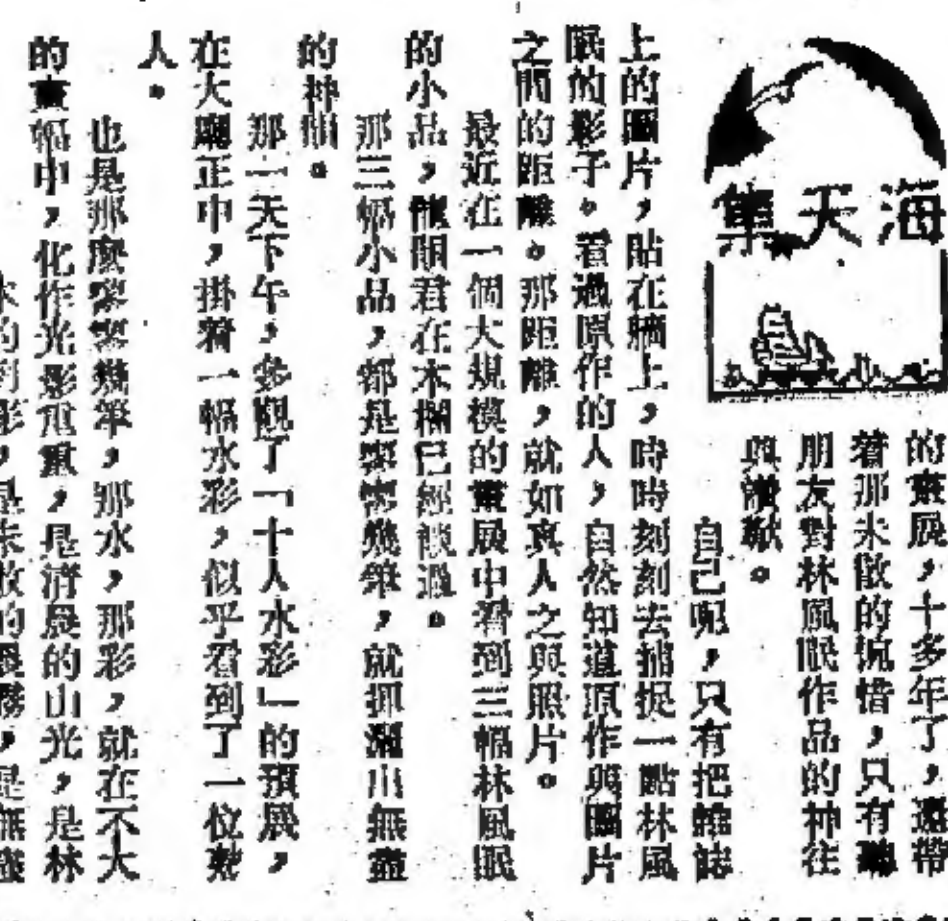 海天集
的畫展，十多年了，還帶
着那未散的惋惜，只有聽
朋友對林風眠作品的神往
與讚歎。
自己呢，只有把雜誌
上的圖片，貼在牆上，時時刻刻去捕捉一點林風
眠的影子。看過原作的人，自然知道原作與圖片
之間的距離。那距離，就如真人之與照片。
最近在一個大規模的畫展中看到三幅林風眠
的小品，龍開君在本欄已經談過。
那三幅小品，都是寥寥幾筆，就抓溜出無盡
的神韻。
那一天下午，參觀了「十人水彩」的預展，
在大廳正中，掛着一幅水彩，似乎看到了一位
人。
也是那麼寥寥幾筆，那水，那彩，就在不大
的畫幅中，化作光影重重，是清晨的山光，是林
的倒影，是未散的晨霧，是無盡